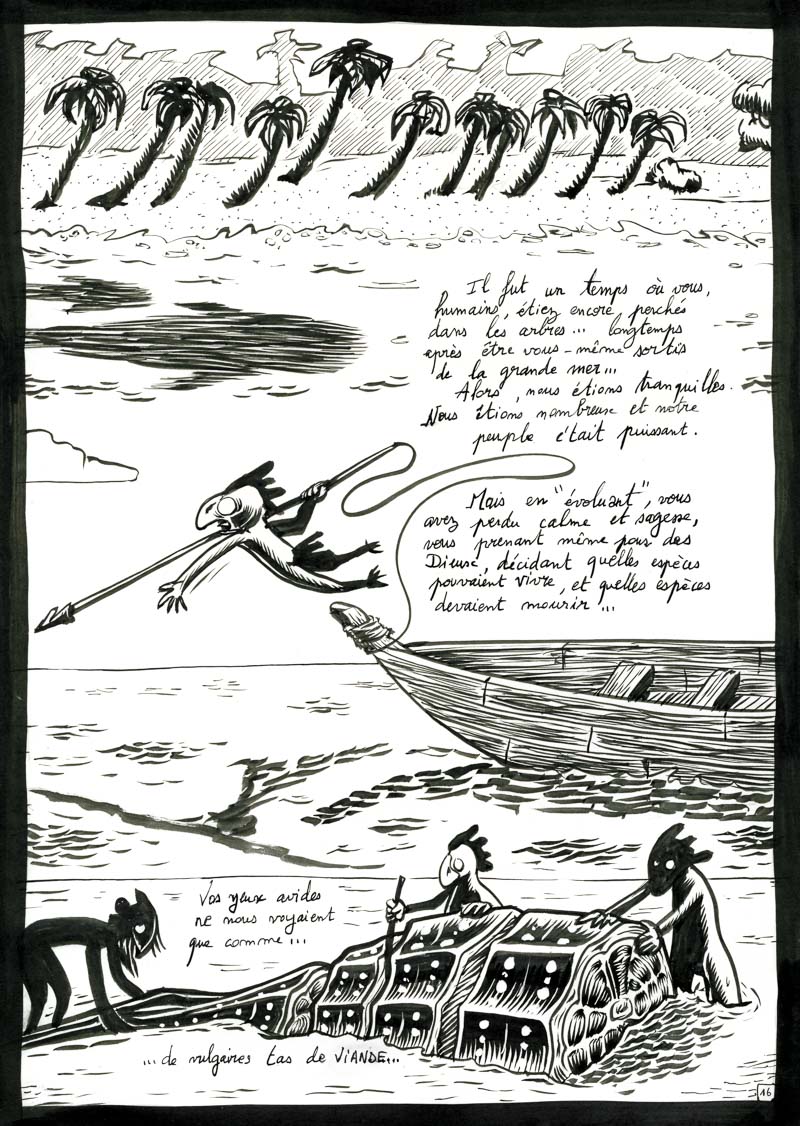 Il fut un temps où vous,
humains, étiez encore perchés
dans les arbres... longtemps
après être vous-même sortis
de la grande mer...
Alors, nous étions tranquilles.
Nous étions nombreux et notre
peuple était puissant.
Mais en "évoluant", vous
avez perdu calme et sagesse,
vous prenant même pour des
Dieux, décidant quelles espèces
pouvaient vivre, et quelles espèces
devaient mourir...
Vos yeux avides
ne nous voyaient
que comme...
...de vulgaires tas de VIANDE...
16